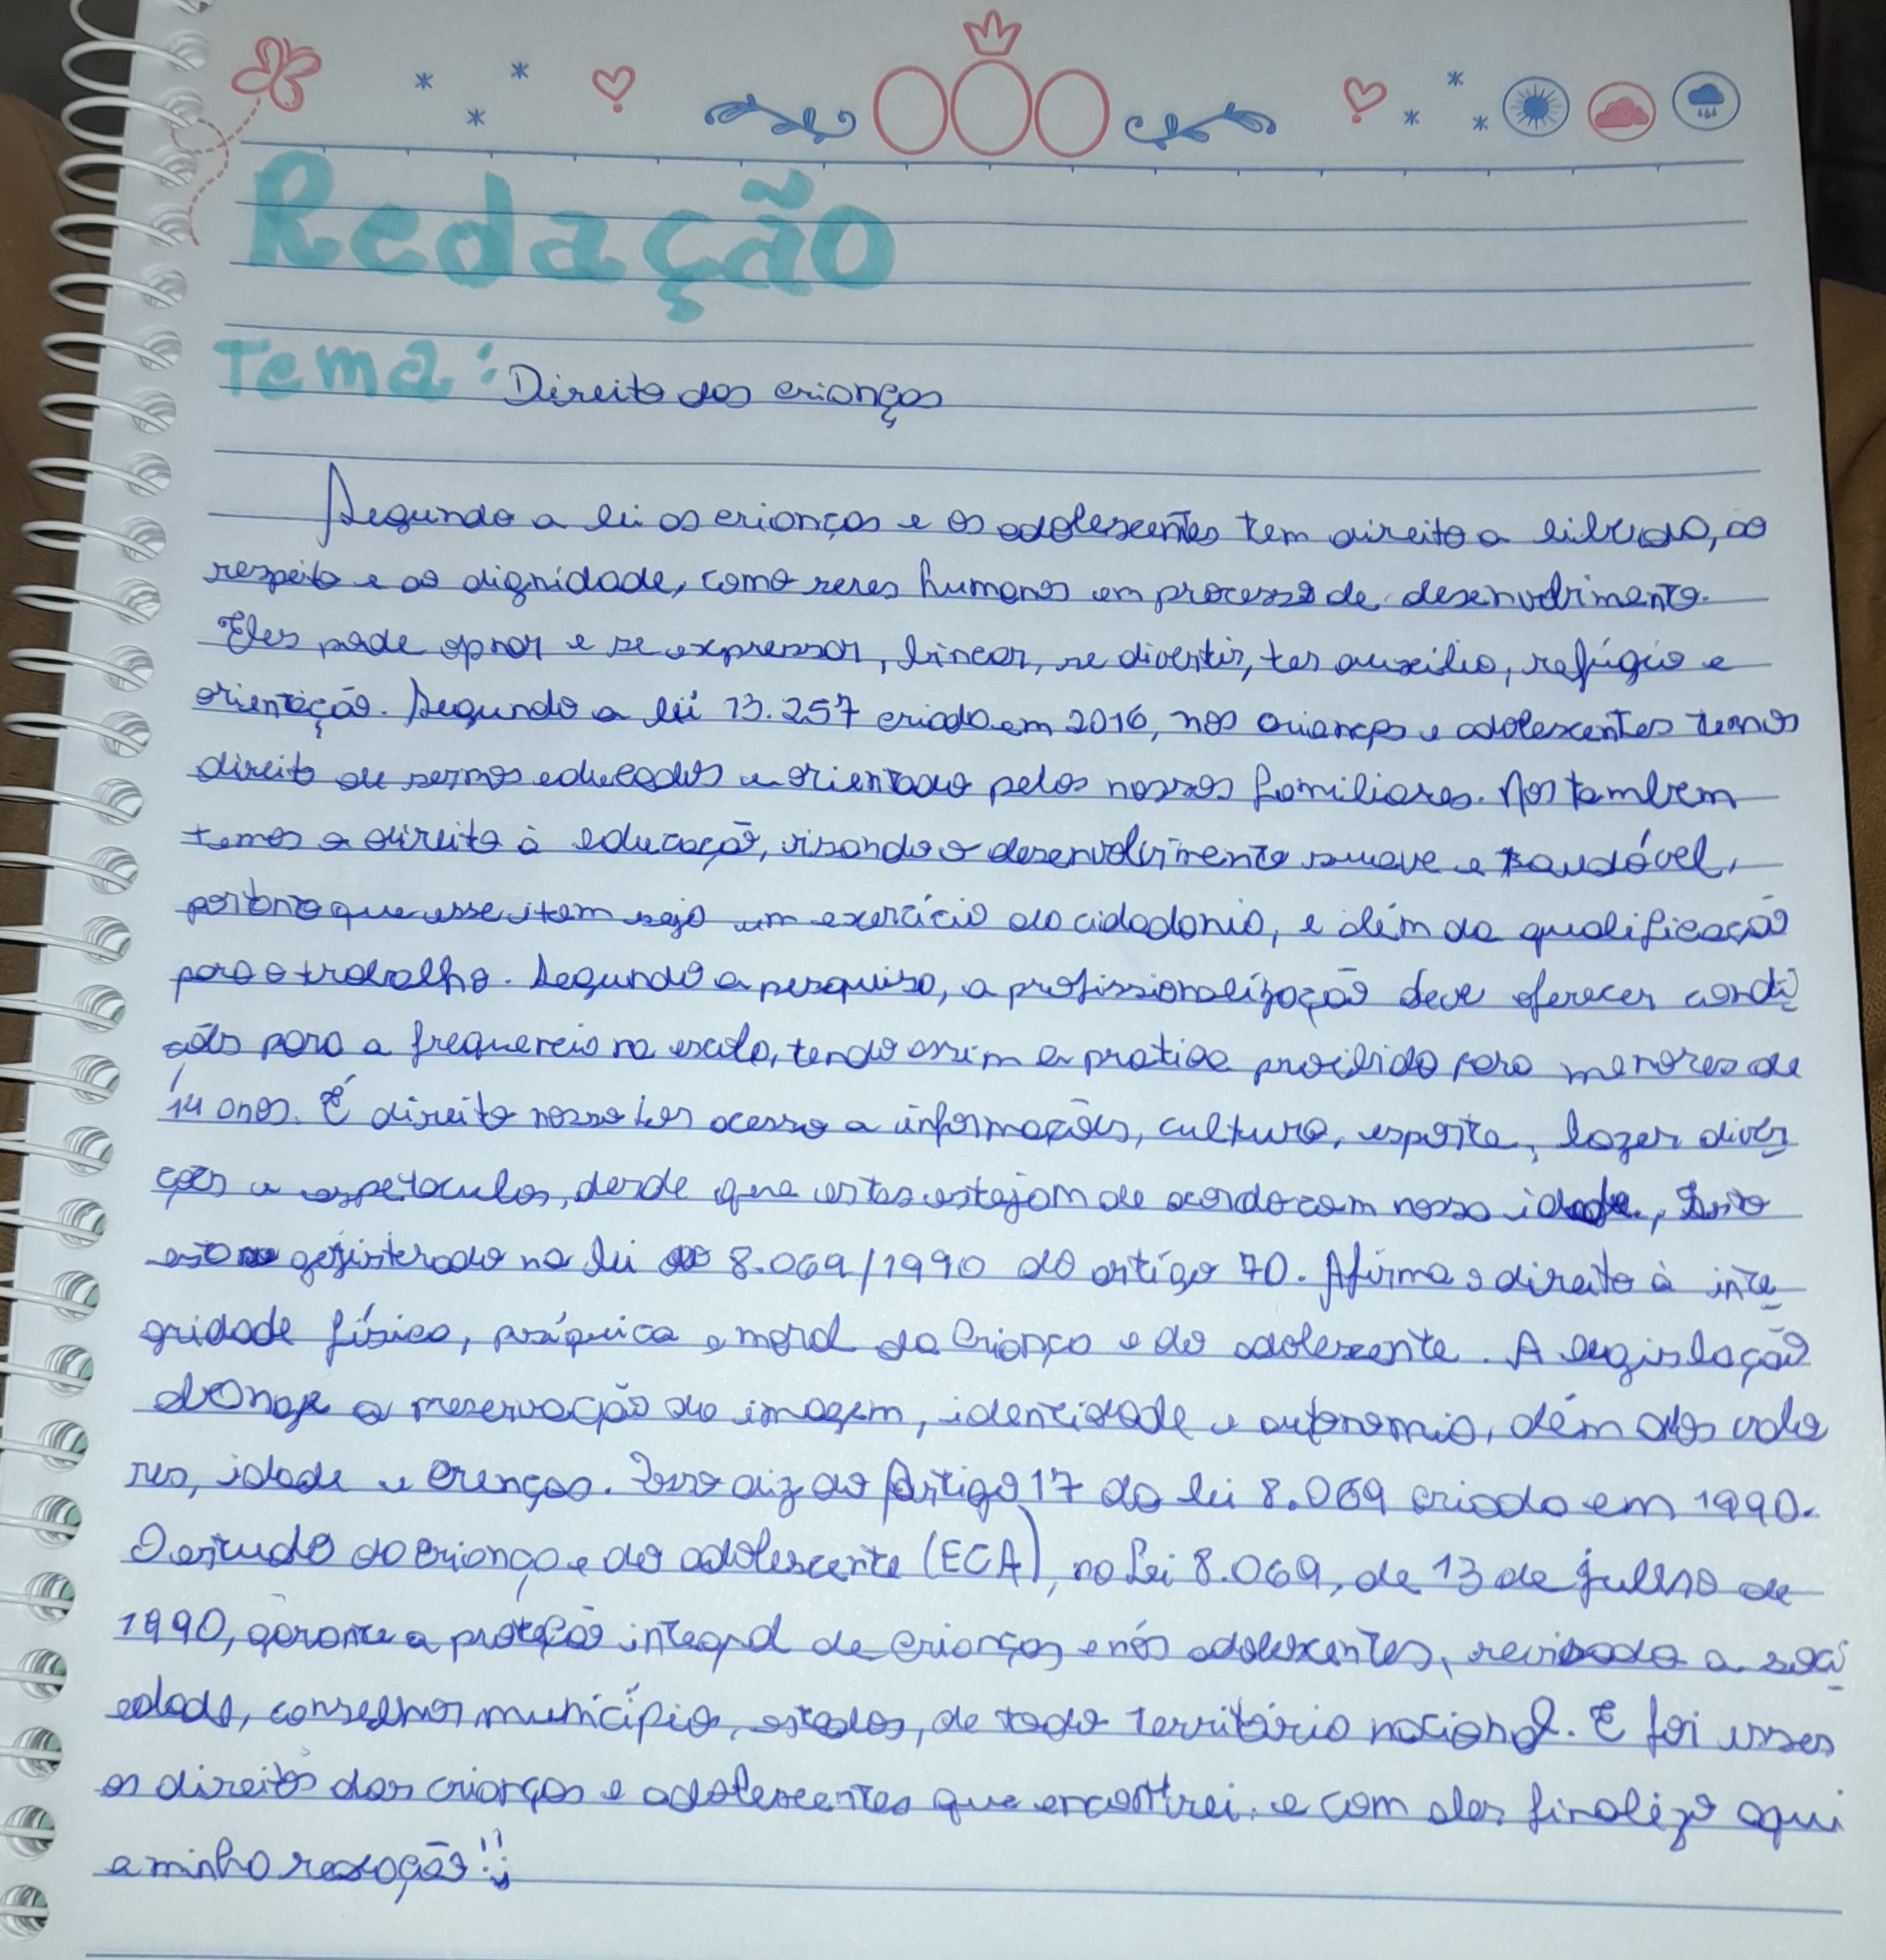 Redação
Tema: Direito das crianças
Segundo a lei as crianças e os adolescentes tem direito a , ao
respeito e ao dignidade, como seres humanos em processo de desenvolvimento.
Eles pode opnar e se expressar, brincar, se divertir, ter auxilio, refúgio e
orientação. Segundo a lei 13.257 criada em 2016, nos crianças e adolescentes temos
direito de sermos educados e orientado pelos nossos familiares. Nos tambem
temos o direito à educação, visando o desenvolvimento suave e saudável,
que esse item seja um exercício da cidadania, e além da qualificação
para o trabalho. Segundo a pesquisa, a profissionalização deve oferecer condi
ções para a frequencia na escola, tendo assim a pratica proibida para menores de
14 anos. É direito nosso ter acesso a informações, cultura, esporte, lazer diver
ções e espetaculos, desde que estes estejam de acordo com nossa idade, Isto
na lei 8.069/1990 do artigo 70. Afirma o direito à inte
gridade física, psíquica e moral da criança e do adolescente. A legislação
a preservação da imagem, identidade e autonomia, além dos valo
res, idade e crenças. Isso diz ao Artigo 17 da lei 8.069 criada em 1990.
O estudo da criança e do adolescente (ECA), na Lei 8.069, de 13 de julho de
1990, garante a proteção integral de crianças e nós adolescentes, a soci
edade, conselhos município, estados, de todo território nacional. E foi esses
os direitos das crianças e adolescentes que encontrei, e com eles finalizo aqui
a minha redação!!